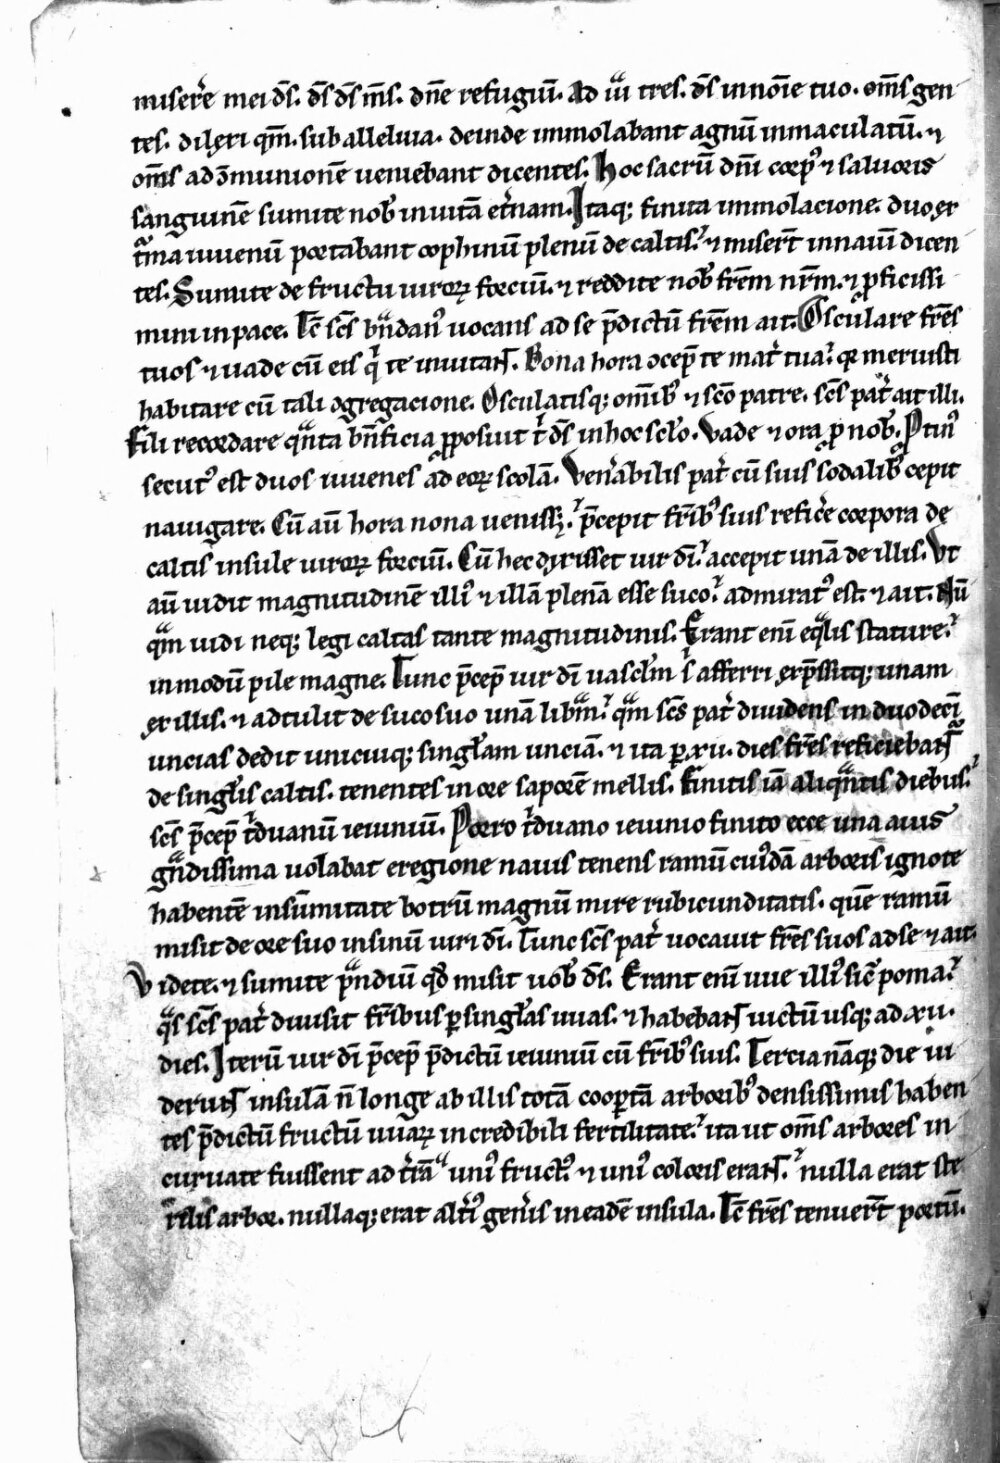 miserẻe mei ds̄. ds̄ ds̄ ms̄. dn̄e refugiū. Ad iii tres. ds̄ in nōie tuo. om̄s gen
tes. dilexi qm̄. sub alleluia. deinde immolabant agnū inmaculatū. ⁊
om̄s ad ɔmunionē ueniebant dicentes. Hoc sacrū dn̄i corpꝰ ⁊ saluoris
sanguinē sumite nob̄ in uitā et̉nam. Itaqꝫ finita immolacione. duo ex
tͣma iuuenū portabant cophinū plenū de caltis. ⁊ miser̄t in nauī dicen
tes. Sumite de fructu uiroꝝ forciū. ⁊ reddite nob̄ frēm nr̄m. ⁊ ꝓficissi
mini in pace. Tc̄ sc̄s bͣndanꝰ uocans ad se p̄dictū frēm ait. Osculare frēs
tuos ⁊ uade cū eis qͥ te inuitant. Bona hora ɔcep̄ te mat̉ tua. qꝛ meruisti
habitare cū tali ɔgregacione. Osculatisqꝫ om̄ibꝰ ⁊ sc̄o patre. sc̄s pat̉ ait illi.
Fili recordare qͣnta bn̄ficia ꝓposuit t̉ ds̄ in hoc sc̄lo. Vade ⁊ ora ꝓ nob̄. Ptinꝰ
secutꝰ est duos iuuenes ad eoꝝ scolā. Ven̉abilis pat̉ cū suis sodalibꝰ cepit
nauigare. Cū aū hora nona uenissꝫ. p̄cepit fr̄ibꝰ suis refic̉e corpora de
caltis insule uiroꝝ forciū. Cū hec dyxisset uir dī. accepit unā de illis. Vt
aū uidit magnitudinē illiꝰ ⁊ illā plenā esse suco. admiratꝰ est. ⁊ ait. Nū
qͣm uidi neqꝫ legi caltas tante magnitudinis. Erant enī eqͣlis stature.
in modū pile magne. Tunc p̄cep̄ uir dī uasclm̄ s̉ afferri exp̄ssitqꝫ unam
ex illis. ⁊ adtulit de suco suo unā libͣm. qͣm sc̄s pat̉ diuidens in duodecī
uncias dedit unicuiqꝫ singl̄am unciā. ⁊ ita ꝑ xii. dies frēs reficiebant
de singl̄is caltis. tenentes in ore saporē mellis. Finitis iā aliqͣntis diebus.
sc̄s p̄cep̄ tͥduanū ieiuniū. Porro tͥduano ieiunio finito ecce una auis
gͣndissima uolabat e regione nauis tenens ramū cuiꝰdā arboris ignote
habentē in sūmitate botrū magnū mire rubicunditatis. quē ramū
misit de ore suo in sinū uiri dī. Tunc sc̄s pat̉ uocauit frēs suos ad se ⁊ ait.
Videte. ⁊ sumite pͣndiū qd̄ misit uob̄ ds̄. Erant enī uue illiꝰ sic̄ poma.
qͣs sc̄s pat̉ diuisit fr̄ibus ꝑ singl̄as uuas. ⁊ habebant uictū usqꝫ ad xii.
dies. Iterū uir dī p̄cep̄ p̄dictū ieiuniū cū fr̄ibꝰ suis. Tercia nāqꝫ die ui
derunt insulā n̄ longe ab illis totā cooꝑtā arboribꝰ densissimis haben
tes p̄dictū fructū uuaꝝ incredibili fertilitate. ita ut om̄s arbores in
curuate fuissent ad t̉rā uniꝰ fructꝰ ⁊ uniꝰ coloris erant. nulla erat ste
rilis arbor. nullaqꝫ erat alt̉iꝰ gen̉is in eadē insula. Tc̄ frēs tenuer̄t portū.